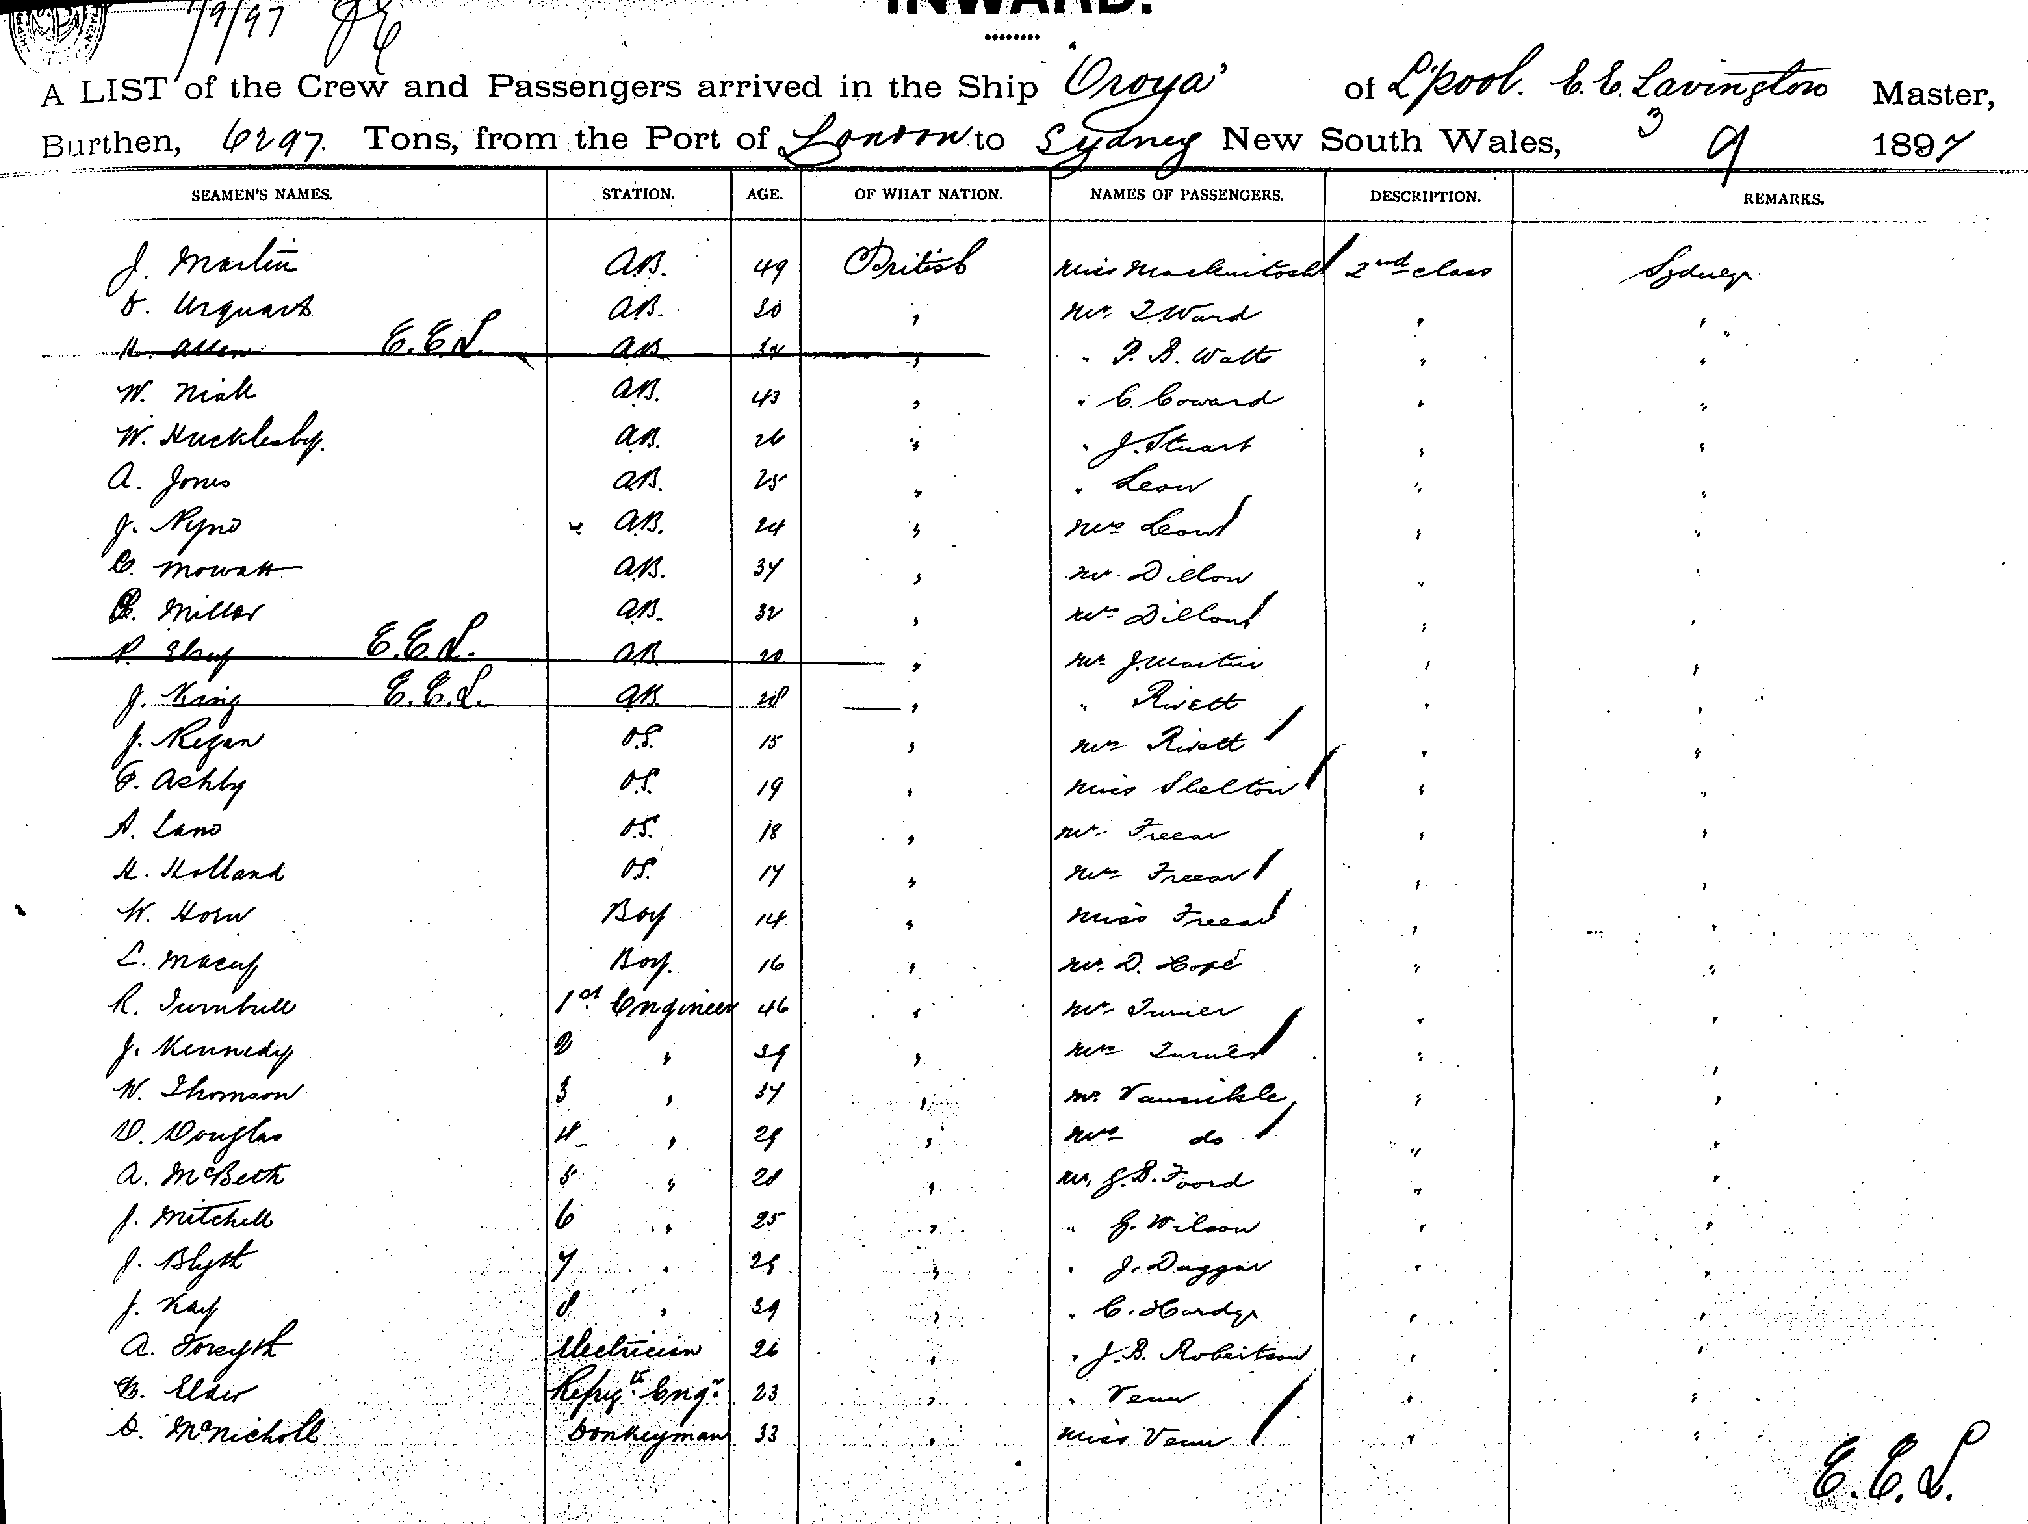 7/9/97
INWARD.
A LIST of the Crew and Passengers arrived in the Ship "Oroya" of L'pool. E. E. Lavington Master,
Burthen, 6297. Tons, from the Port of London to Sydney New South Wales, 3 9 1897
SEAMEN'S NAMES. STATION. AGE. OF WHAT NATION. NAMES OF PASSENGERS. DESCRIPTION. REMARKS.
J. Martin AB. 49 British Miss Mackintosh 2nd class Sydney
Urquart AB. 30 " Mr. T. Ward " "
H. Allen E.E.L. AB " " P. B. Watts " "
W. AB. 43 " " C. Coward " "
W. Hucklesby. AB. 26 " " J. Stuart " "
A. Jones AB. 25 " " Leow " "
J. AB. 24 " Mrs Leow " "
C. Mowatt AB. 34 " Mr. Dillon " "
Miller AB. 32 " Mrs Dillon " "
E.E.L. AB 20 " Mr. J. Martin " "
J. King E.E.L. AB 28 " " Rivett " "
J. Regan O.S. 15 " Mrs Rivett " "
F. Ashby O.S. 19 " Miss Skelton " "
A. Lane O.S. 18 " Mr. Freear " "
H. Holland O.S. 17 " Mrs Freear " "
W. Horn Boy 14 " Miss Freear " "
L. Macey Boy. 16 " Mr. D. Hope " "
R. Turnbull 1st Engineer 46 " Mr. Turner " "
J. Kennedy 2 " 39 " Mrs Turner " "
W. Thomson 3 " 34 " Mr. Vansickle " "
D. Douglas 4 " 29 " Mrs do " "
A. McBeth 5 " 28 " Mr. G. B. Foord " "
J. Mitchell 6 " 25 " " G. Wilson " "
J. Blyth 7 " " " J. Duggan " "
J. Kay 8 " 39 " " C. Hardy " "
A. Forsyth Electrician 26 " " J. B. Robertson " "
B. Elder Refrig. Engr. 23 " " Venn " "
D. McNicholl Donkeyman 33 " Miss Venn " "
E.E.L.